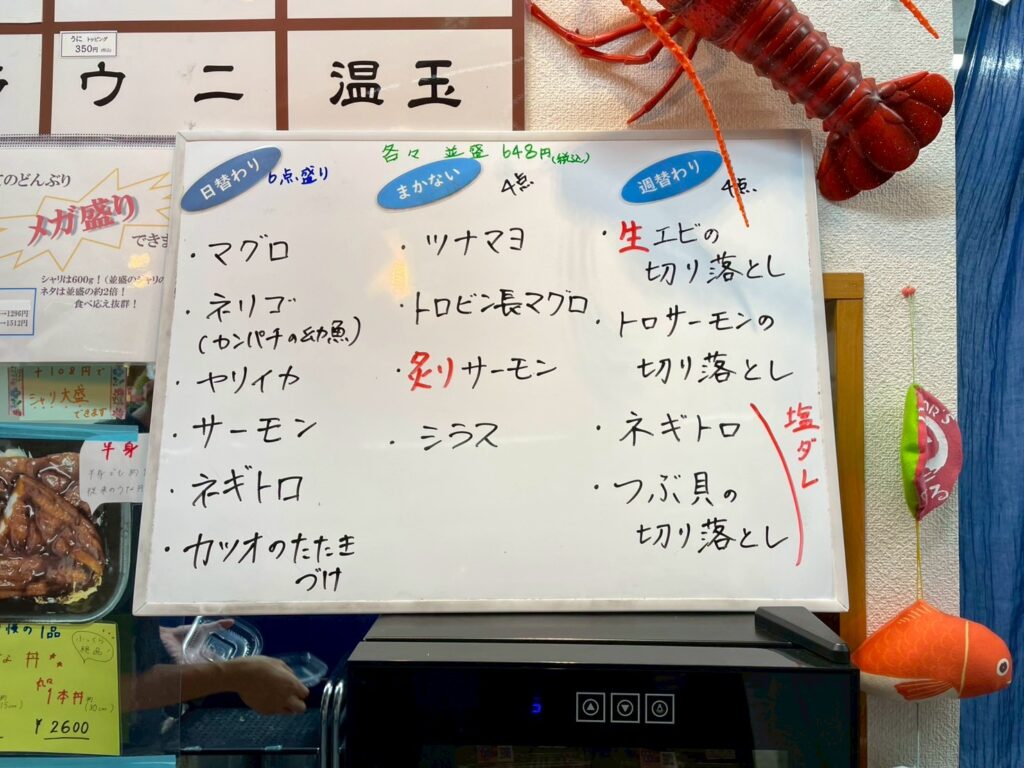 うに トッピング
350円(税込)
ウニ
温玉
てのどんぶり
メガ盛り
できま
シャリは600g!(並盛のシャリの
ネタは並盛の約2倍!
食べ応え抜群!
→1296円
→1512円
+108円で
シャリ大盛
できます
半身
各々 並盛 648円(税込)
日替わり
6点盛り
・マグロ
・ネリゴ
(カンパチの幼魚)
・ヤリイカ
・サーモン
・ネギトロ
・カツオのたたき
づけ
まかない
4点
・ツナマヨ
・トロビン長マグロ
・炙りサーモン
・シラス
週替わり
4点
・生エビの
切り落とし
・トロサーモンの
切り落とし
・ネギトロ
・つぶ貝の
切り落とし
塩ダレ
の1品
丼
1本丼
(30cm)
¥2600